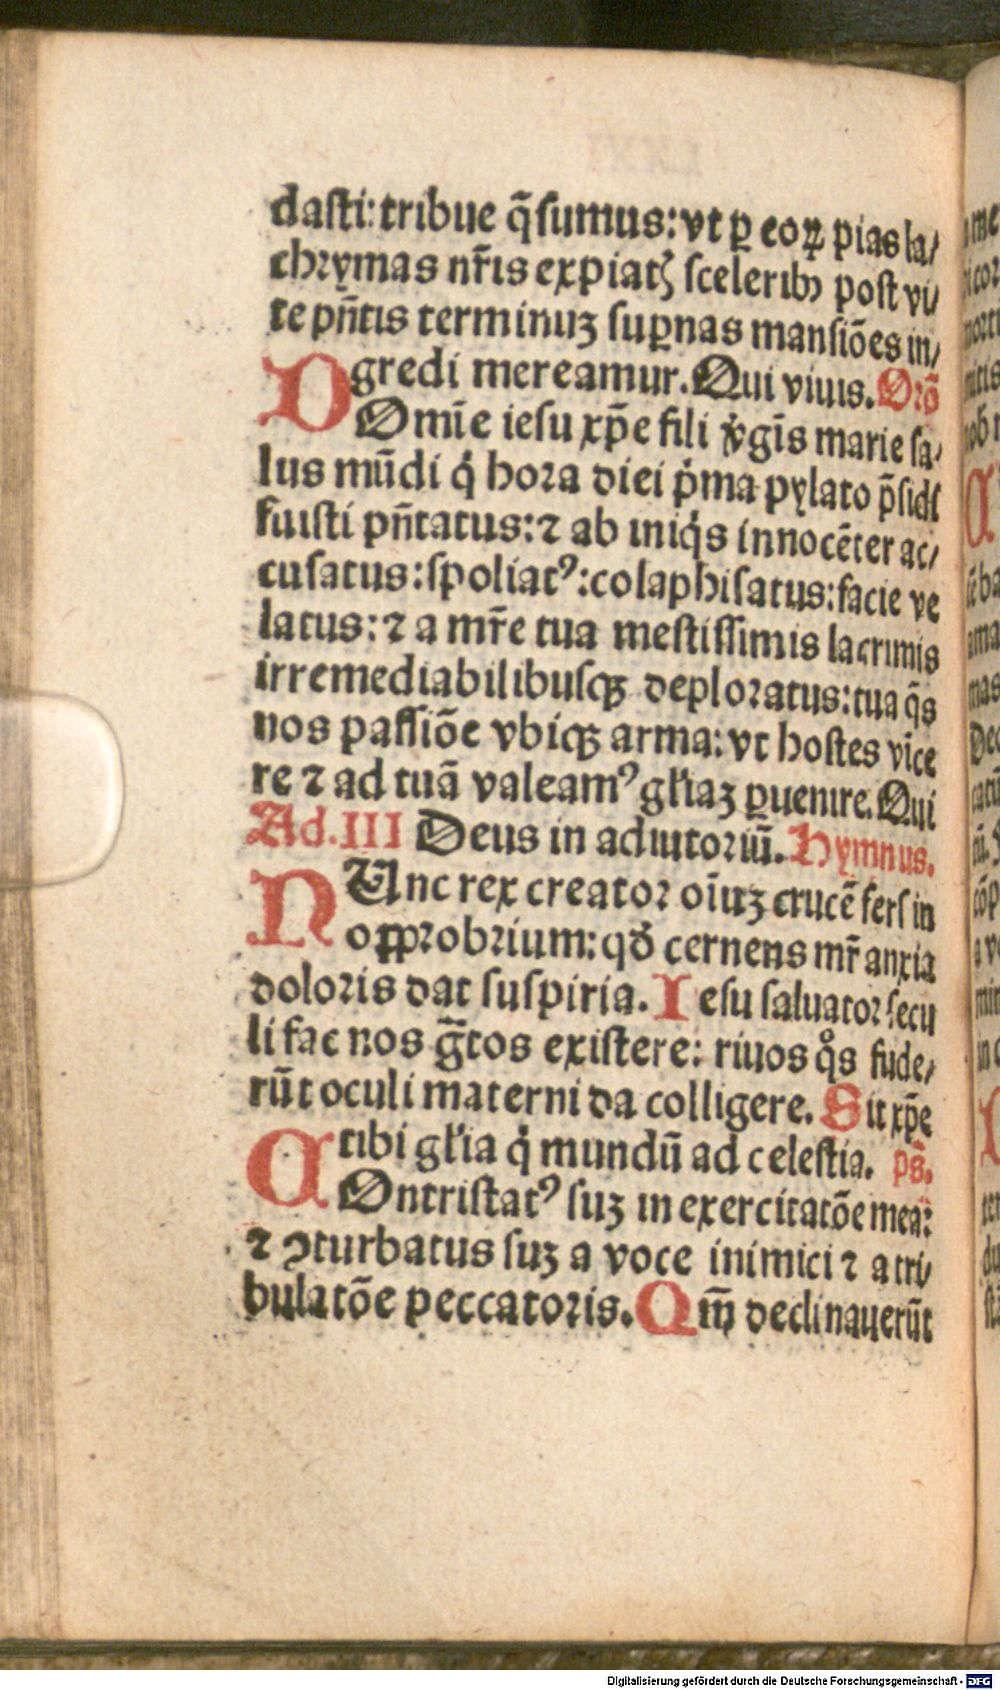 dasti: tribue q̃sumus: vt ꝑ eoꝝ pias la/
chrymas nr̃is expiatꝭ sceleribꝰ post vi/
te pñtis terminuꝫ suꝑnas mansiões in/
gredi mereamur. Qui viuis. Orõ
DOmĩe iesu xp̃e fili v̇gĩs marie sa/
lus mũdi q̇ hora diei ṗma pylato p̃sidi
fuisti pñtatus: ⁊ ab iniq̇s innocẽter ac/
cusatus: spoliatꝰ: colaphisatus: facie ve
latus: ⁊ a mr̃e tua mestissimis lacrimis
irremediabilibusqꝫ deploratus: tua q̃s
nos passiõe vbiqꝫ arma: vt hostes vĩce
re ⁊ ad tuã valeamꝰ gl'iaꝫ ꝑuenire. Qui
Ad. III Deus in adiutoriũ. Hymnus.
NUnc rex creator oĩuꝫ crucẽ fers in
opprobrium: qđ cernens mr̃ anxia
doloris dat suspiria. Iesu saluator secu
li fac nos g̃tos existere: riuos q̊s fude/
rũt oculi materni da colligere. Sit xp̃e
tibi gl'ia q̇ mundũ ad celestia. ps̃.
COntristatꝰ suꝫ in exercitatõe mea:
⁊ ꝯturbatus suꝫ a voce inimici ⁊ a tri/
bulatõe peccatoris. Qm̃ declinauerũt
Digitalisierung gefördert durch die Deutsche Forschungsgemeinschaft - DFG